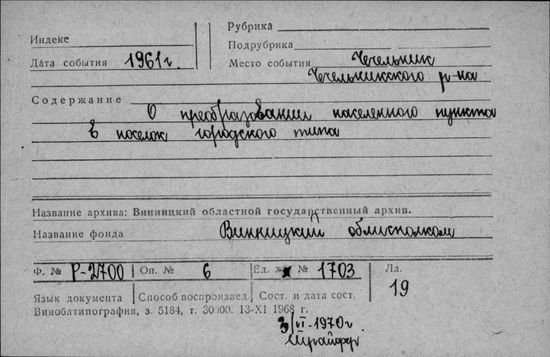 Индекс
Рубрика
Подрубрика
Дата события 1961 г.
Место события Чечельник
Чечельникского р-на
Содержание О преобразовании населенного пункта
в поселок городского типа
Название архива: Винницкий областной государственный архив.
Название фонда Винницкий облисполком
Ф. № Р-2700 Оп. № 6 Ед. хр № 1703 Лл.
19
Язык документа Способ воспроизвед. Сост. и дата сост.
Виноблтипография, з. 5184, т. 30000. 13-XI 1968 г.
3/VI-1970г.